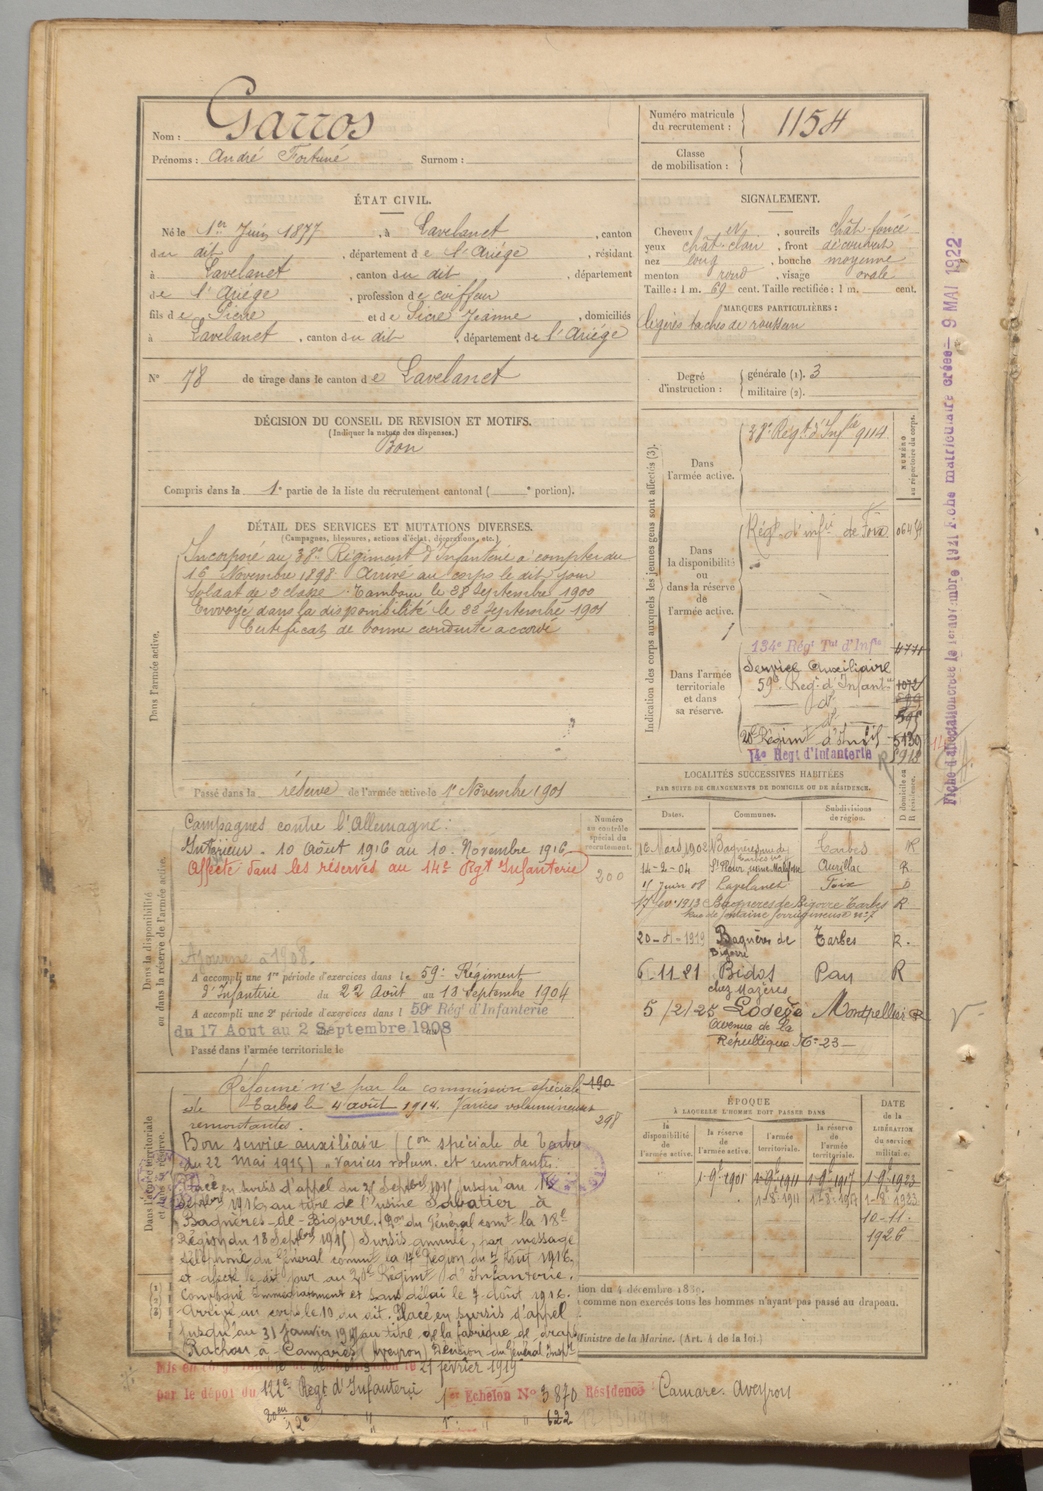 Nom : Garros
Prénoms : André Fortuné Surnom :
Numéro matricule du recrutement : 1154
Classe de mobilisation :
ÉTAT CIVIL.
Né le 1er Juin 1877, à Lavelanet, canton
du dit, département de l'Ariége, résidant
à Lavelanet, canton du dit, département
de l'Ariége, profession de coiffeur
fils de Pierre et de Sicre Jeanne, domiciliés
à Lavelanet, canton du dit, département de l'Ariége
N° 78 de tirage dans le canton de Lavelanet
SIGNALEMENT.
Cheveux , sourcils chât foncé
yeux chât. clair, front découvert
nez long, bouche moyenne
menton rond, visage ovale
Taille : 1 m. 69 cent. Taille rectifiée : 1 m. cent.
MARQUES PARTICULIÈRES :
légères taches de rousseur
Degré d'instruction : générale (1). 3
militaire (2).
DÉCISION DU CONSEIL DE REVISION ET MOTIFS.
(Indiquer la nature des dispenses.)
Bon
Compris dans la 1e partie de la liste du recrutement cantonal ( e portion).
DÉTAIL DES SERVICES ET MUTATIONS DIVERSES.
(Campagnes, blessures, actions d'éclat, décorations, etc.)
Dans l'armée active.
Incorporé au 38e Régiment d'Infanterie à compter du
16 Novembre 1898. Arrivé au corps le dit jour
soldat de 2e classe. Tambour le 28 Septembre 1900
Envoyé dans la disponibilité le 22 Septembre 1901
Certificat de bonne conduite accordé
Passé dans la réserve de l'armée active le 1er Novembre 1901
Indication des corps auxquels les jeunes gens sont affectés (3).
NUMÉRO au répertoire du corps.
Dans l'armée active.
38e Régt d'Infie 9114
Dans la disponibilité ou dans la réserve de l'armée active.
Régt d'infie de Foix
Dans l'armée territoriale et dans sa réserve.
134e Régt Tal d'Infie 4771
Service Auxiliaire
59e Régt d'Infantie
do
do 595
Régiment d'Inf
14e Regt d'Infanterie
Fiche d'affectation créée le
9 MAI 1922
Dans la disponibilité ou dans la réserve de l'armée active.
Numéro au contrôle spécial du recrutement.
Campagnes contre l'Allemagne :
Intérieur. 10 Août 1916 au 10 Novembre 1916
Affecté dans les réserves au 14e Rgt Infanterie
200
Ajourné à 1908.
A accompli une 1re période d'exercices dans le 59e Régiment
d'Infanterie du 22 Août au 13 Septembre 1904
A accompli une 2e période d'exercices dans l 59e Régt d'Infanterie
du 17 Aout au 2 Septembre 1908
Passé dans l'armée territoriale le
LOCALITÉS SUCCESSIVES HABITÉES
PAR SUITE DE CHANGEMENTS DE DOMICILE OU DE RÉSIDENCE.
D domicile ou R résidence.
Dates. Communes. Subdivisions de région.
16 Mars 1902 Bagnères de Tarbes R
14-2-04 St Flour Aurillac R
Juin 08 Lavelanet Foix D
17 fév 1913 Bagnères de Bigorre Tarbes R
20-4-1919 Bagnères de Bigorre Tarbes R.
6 11-21 Bidos Pau R
chez Mazères
5/2/25 Lodève Montpellier R
Avenue de la
République No 23
Dans l'armée territoriale et dans sa réserve.
Réformé n° 2 par la commission spéciale 190
de Tarbes le 4 août 1914. Varices volumineuses 298
remontantes.
Bon service auxiliaire (Con spéciale de Tarbes
du 22 Mai 1915) "Varices volum. et remontantes.
Placé en sursis d'appel du
Septbre 1916, au titre de l'usine Sabatier à
Bagnères-de-Bigorre. (Don du Général comt la 18e
Région du 18 Septbre 1915) Sursis annulé, par message
téléphoné du Général commt la Région du 7 Août 1916.
et affecté le dit jour au Régiment d'Infanterie.
Convoqué Immédiatement et sans délai le 7 Août 1916.
Arrivé au corps le 10 du dit. Placé en sursis d'appel
jusqu'au 31 Janvier au titre de la fabrique de draps
Rachou à Camarès (Aveyron)
le 21 février 1919
par le dépôt du 122e Régt d'Infanterie 1er Echelon No 3870 Résidence Camarès. Aveyron
ÉPOQUE
À LAQUELLE L'HOMME DOIT PASSER DANS
DATE de la LIBÉRATION du service militaire.
la disponibilité de l'armée active.
la réserve de l'armée active.
l'armée territoriale.
la réserve de l'armée territoriale.
1-9e-1901 1-9e-1911 1-9e-1917 1-9e-1923
1-8e-1911
10-11-
1926
tion du 4 décembre 1839.
comme non exercés tous les hommes n'ayant pas passé au drapeau.
Ministre de la Marine. (Art. 4 de la loi.)